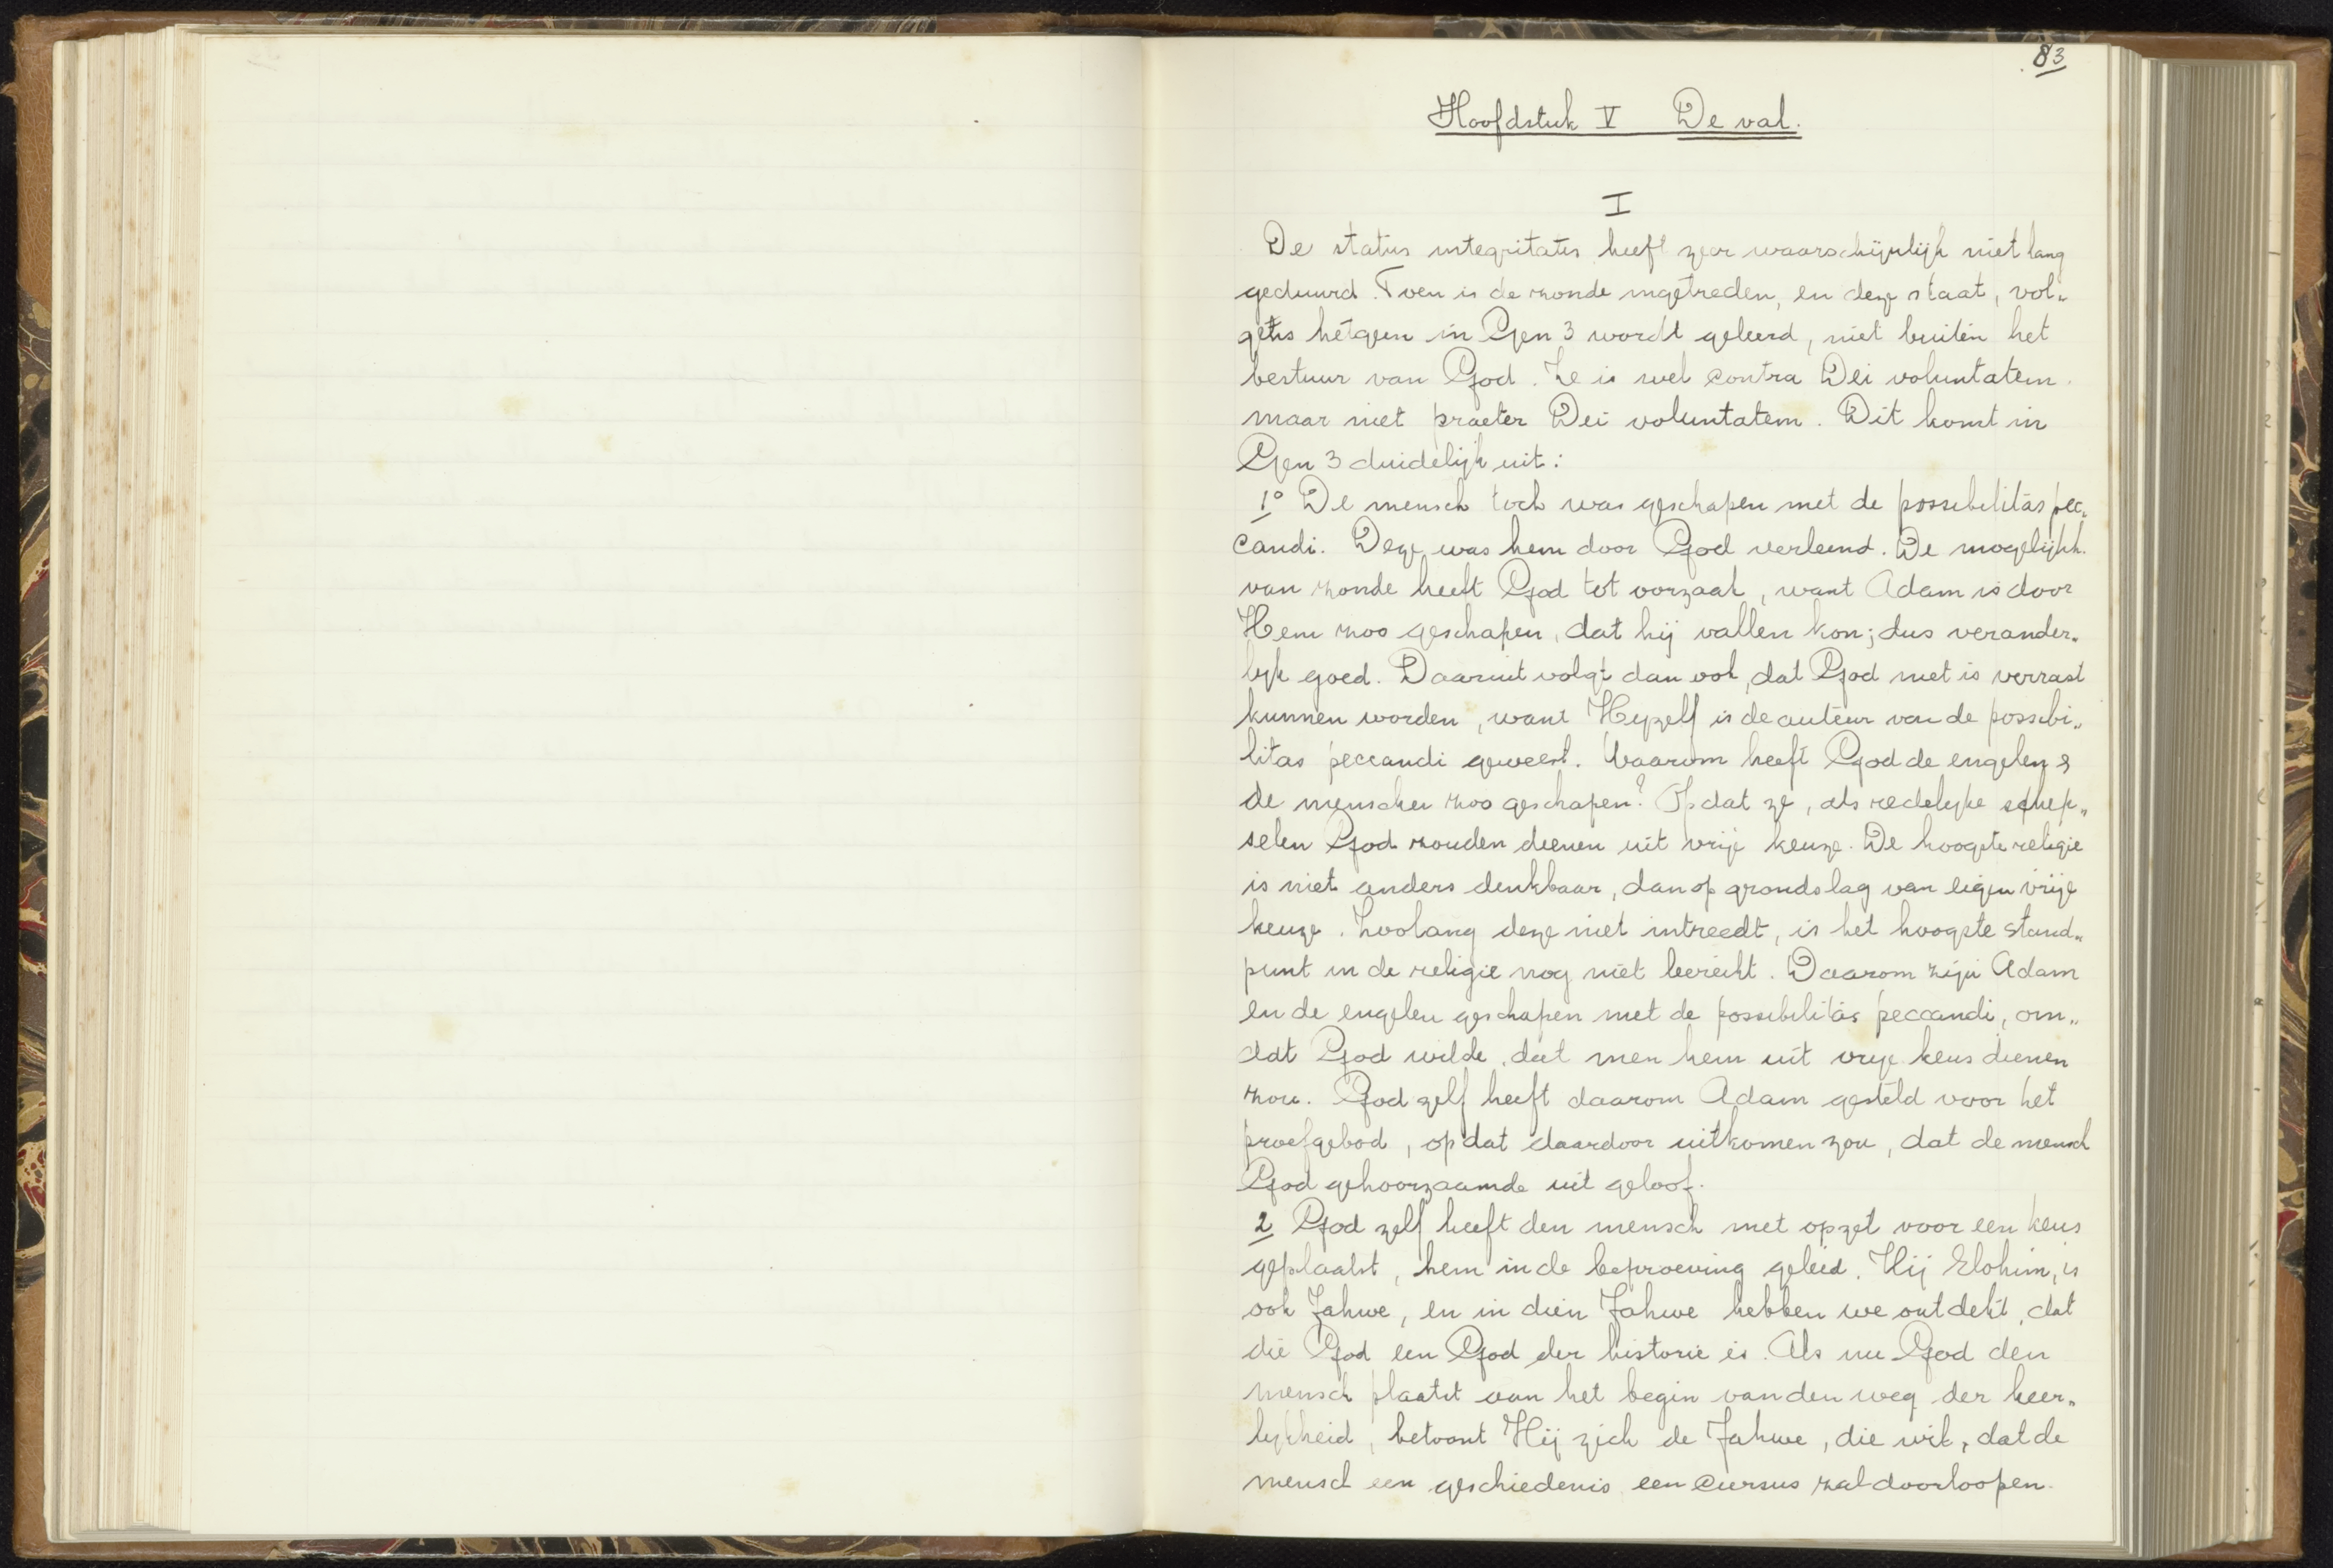 83
Hoofdstuk V De val.
I
De status integritatis heeft zeer waarschijnlijk niet lang
geduurd. Toen is de zonde ingetreden, en deze staat, vol„
gens hetgeen in Gen 3 wordt geleerd, niet buiten het
bestuur van God. Ze is wel contra Dei voluntatem
maar niet praeter Dei voluntatem. Dit komt in
Gen 3 duidelijk uit:
1° De mensch toch was geschapen met de possibilitas pec„
candi. Deze was hem door God verleend. De mogelijkh.
van zonde heeft God tot oorzaak, want Adam is door
Hem zoo geschapen, dat hij vallen kon; dus verander„
lijk goed. Daaruit volgt dan ook, dat God niet is verrast
kunnen worden, want Hijzelf is de auteur van de possibi„
litas peccandi geweest. Waarom heeft God de engelen &
de menschen zoo geschapen? Opdat ze, als redelijke schep„
selen God zouden dienen uit vrije keuze. De hoogste religie
is niet anders denkbaar, dan op grondslag van eigen vrije
keuze. Zoolang deze niet intreedt, is het hoogste stand„
punt in de religie nog niet bereikt. Daarom zijn Adam
en de engelen geschapen met de possibilitas peccandi, om„
dat God wilde, dat men hem uit vrije keus dienen
zou. God zelf heeft daarom Adam gesteld voor het
proefgebod, opdat daardoor uitkomen zou, dat de mensch
God gehoorzaamde uit geloof.
2 God zelf heeft den mensch met opzet voor een keus
geplaatst, hem in de beproeving geleid. Hij Elohim, is
ook Jahwe, en in dien Jahwe hebben we ontdekt, dat
die God een God der historie is. Als nu God den
mensch plaatst aan het begin van den weg der heer„
lijkheid, betoont Hij zich de Jahwe, die wil, dat de
mensch een geschiedenis een cursus zal doorloopen.